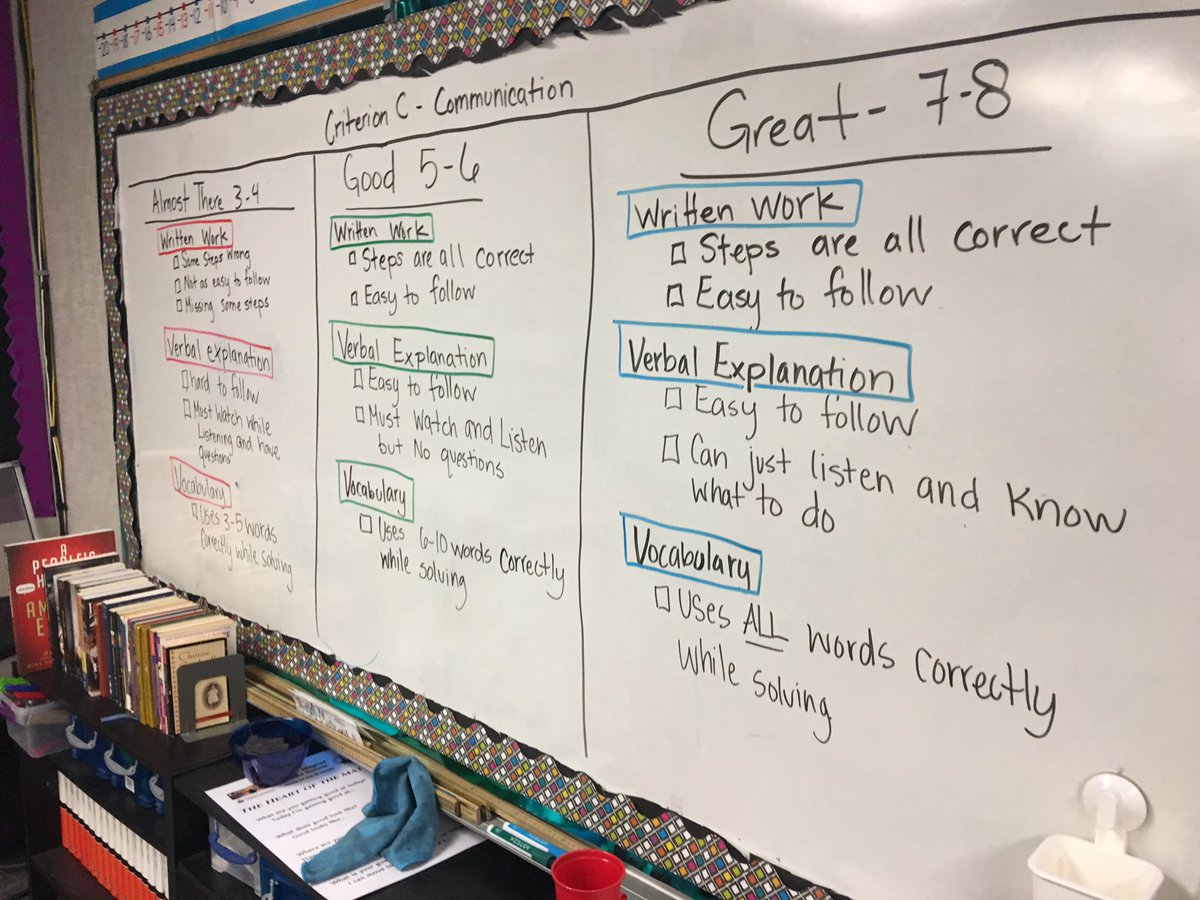 -20 -19 -18 -17 -16 -15 -14 -13 -12 -11
Criterion C - Communication
Almost There 3-4
Written Work
Some Steps Wrong
Not as easy to follow
Missing some steps
Verbal explanation
hard to follow
Must Watch while
Listening and have
questions
Vocabulary
Uses 3-5 words
Correctly while solving
Good 5-6
Written Work
Steps are all correct
Easy to follow
Verbal Explanation
Easy to follow
Must Watch and Listen
but No questions
Vocabulary
Uses 6-10 words Correctly
while solving
Great - 7-8
Written Work
Steps are all correct
Easy to follow
Verbal Explanation
Easy to follow
Can just listen and know
what to do
Vocabulary
Uses ALL words Correctly
while solving
A
PEOPLE'S
THE HEART OF THE
What are you getting good at today?
Today I'm getting good at...
What does good look like?
Good looks like...
Where are
What is your
I can